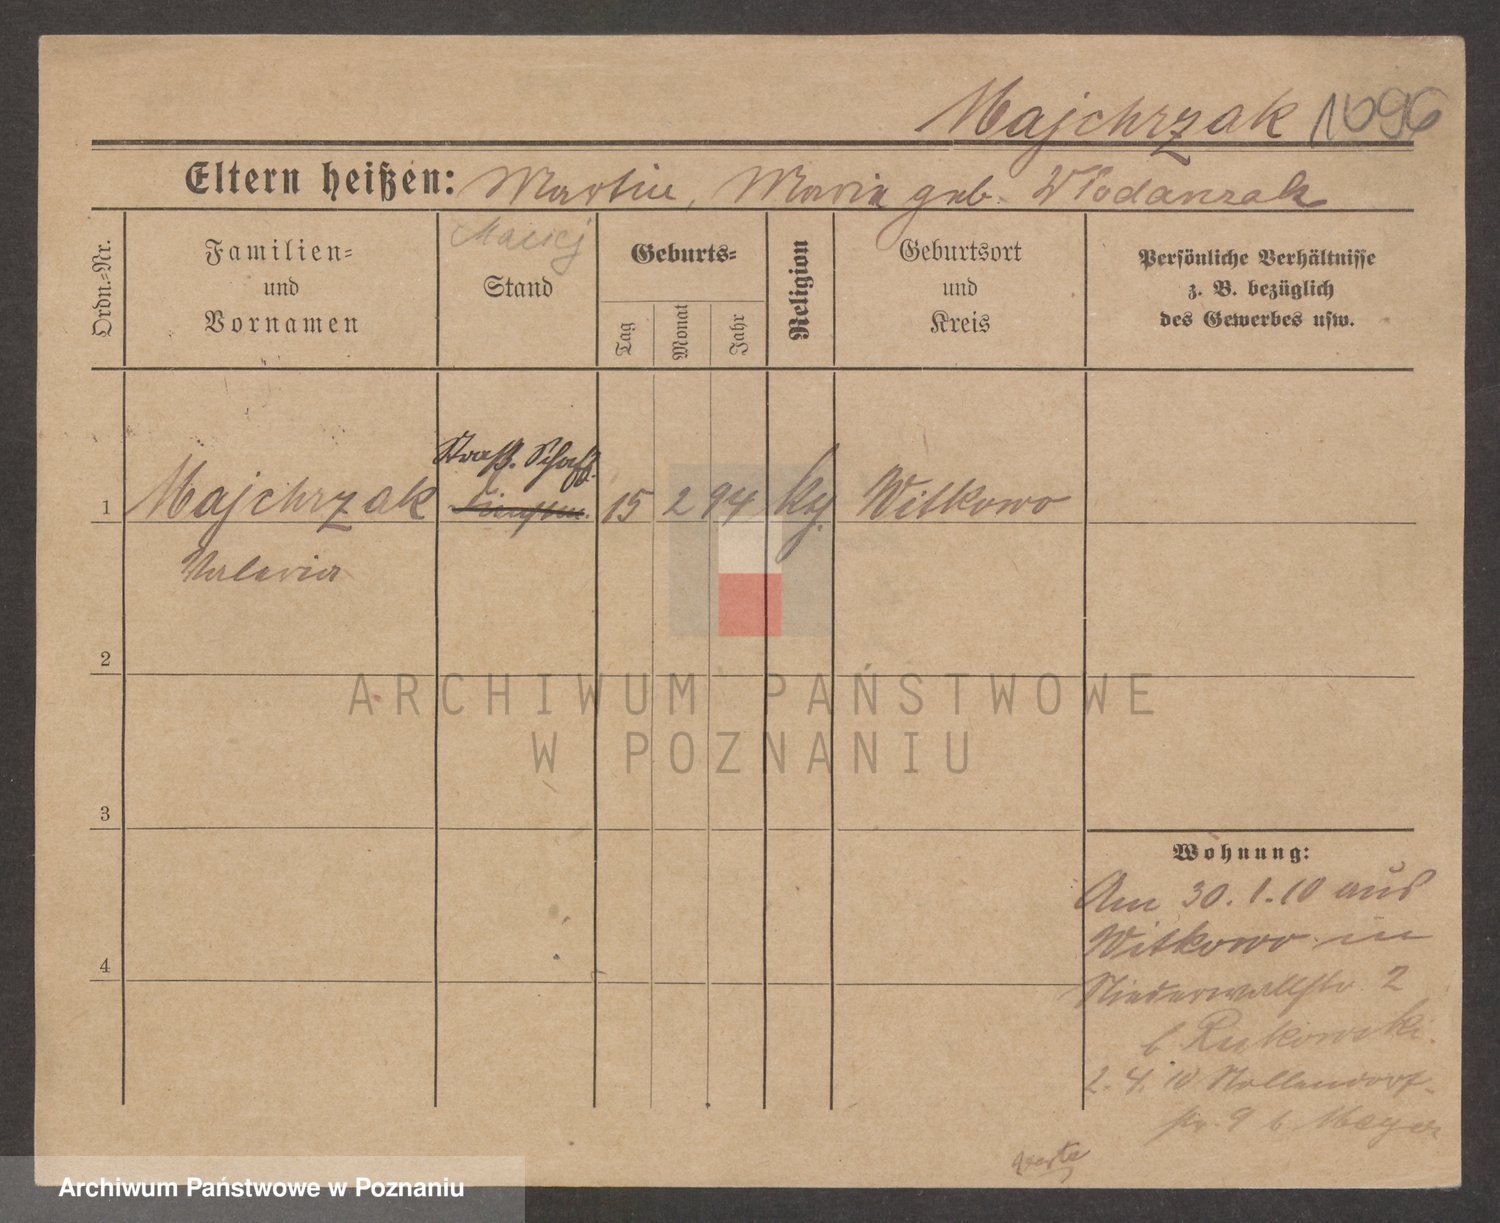 Majchrzak 1096
Eltern heißen: Martin, Maria geb. Wlodarzak
Maciej
Ordn.=Nr.
Familien=
und
Vornamen
Stand
Geburts=
Tag
Monat
Jahr
Religion
Geburtsort
und
Kreis
Persönliche Verhältnisse
z. B. bezüglich
des Gewerbes usw.
1 Majchrzak 15 2 94 Witkowo
Valeria
2
3
4
Wohnung:
Am 30.1.10 aus
Witkowo in
Niederwallstr. 2
b.
2.4.10 Nollendorf-
str. 9 b. Meyer
verte
ARCHIWUM PAŃSTWOWE
W POZNANIU
Archiwum Państwowe w Poznaniu